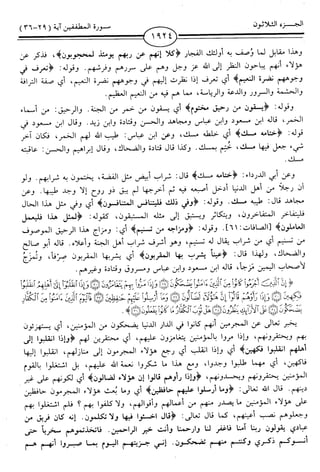 الجـــزء الثلاثون
سورة المطففين آية (٢٩-٣٦)
١٩٢٤
وهذا مقابل لما وُصف به أولئك الفجار ﴿كلا إنهم عن ربهم يومئذ لمحجوبون﴾، فذكر عن
هؤلاء أنهم يباحون النظر إلى الله عز وجل وهم على سررهم وفرشهم. وقوله: ﴿تعرف في
وجوههم نضرة النعيم﴾ أي تعرف إذا نظرت إليهم في وجوههم نضرة النعيم، أي صفة الترافة
والحشمة والسرور والدعة والرياسة، مما هم فيه من النعيم العظيم.
وقوله: ﴿يسقون من رحيق مختوم﴾ أي يسقون من خمر من الجنة. والرحيق: من أسماء
الخمر، قاله ابن مسعود وابن عباس ومجاهد والحسن وقتادة وابن زيد. وقال ابن مسعود في
قوله: ﴿ختامه مسك﴾ أي خلطه مسك، وعن ابن عباس: طيب الله لهم الخمر، فكان آخر
شيء جعل فيها مسك، خُتِم بمسك. وكذا قال قتادة والضحاك، وقال إبراهيم والحسن: عاقبته
مسك.
وعن أبي الدرداء: ﴿ختامه مسك﴾ قال: شراب أبيض مثل الفضة، يختمون به شرابهم. ولو
أن رجلاً من أهل الدنيا أدخل أصبعه فيه ثم أخرجها لم يبق ذو روح إلا وجد طيبها. وعن
مجاهد قال: طيبه مسك. وقوله: ﴿وفي ذلك فليتنافس المتنافسون﴾ أي وفي مثل هذا الحال
فليتفاخر المتفاخرون، ويتباكر ويستبق إلى مثله المستبقون، كقوله: ﴿لمثل هذا فليعمل
العاملون﴾ [الصافات: ٦١]. وقوله: ﴿ومزاجه من تسنيم﴾ أي: ومزاج هذا الرحيق الموصوف
من تسنيم أي من شراب يقال له تسنيم، وهو أشرف شراب أهل الجنة وأعلاه. قاله أبو صالح
والضحاك، ولهذا قال: ﴿عيناً يشرب بها المقربون﴾ أي يشربها المقربون صِرفاً، وتُمزجُ
لأصحاب اليمين مَزجاً، قاله ابن مسعود وابن عباس ومسروق وقتادة وغيرهم.
يخبر تعالى عن المجرمين أنهم كانوا في الدار الدنيا يضحكون من المؤمنين، أي يستهزئون
بهم ويحتقرونهم، وإذا مروا بالمؤمنين يتغامزون عليهم، أي محتقرين لهم ﴿وإذا انقلبوا إلى
أهلهم انقلبوا فكهين﴾ أي وإذا انقلب أي رجع هؤلاء المجرمون إلى منازلهم، انقلبوا إليها
فاكهين، أي مهما طلبوا وجدوا، ومع هذا ما شكروا نعمة الله عليهم، بل اشتغلوا بالقوم
المؤمنين يحتقرونهم ويحسدونهم، ﴿وإذا رأوهم قالوا إن هؤلاء لضالون﴾ أي لكونهم على غير
دينهم. قال الله تعالى: ﴿وما أرسلوا عليهم حافظين﴾ أي وما بُعث هؤلاء المجرمون حافظين
على هؤلاء المؤمنين ما يصدر منهم من أعمالهم وأقوالهم، ولا كلفوا بهم؟ فلم اشتغلوا بهم
وجعلوهم نصب أعينهم، كما قال تعالى: ﴿قال اخسئوا فيها ولا تكلمون. إنه كان فريق من
عبادي يقولون ربنا آمنا فاغفر لنا وارحمنا وأنت خير الراحمين. فاتخذتموهم سخرياً حتى
أنسوكم ذكري وكنتم منهم تضحكون. إني جزيتهم اليوم بما صبروا أنهم هم